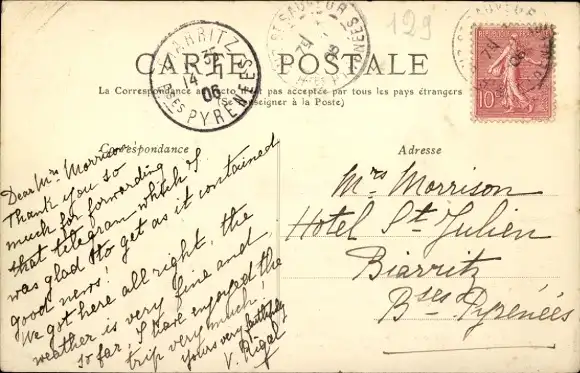 129
CARTE POSTALE
La Correspondance au recto n'est pas acceptée par tous les pays étrangers
(Se renseigner à la Poste)
BIARRITZ
14
06
BSES PYRENEES
ST SAUVEUR
REPUBLIQUE FRANÇAISE
10
Correspondance
Dear Mrs Morrison
Thank you so
much for forwarding
that telegram which I
was glad to get as it contained
good news!
We got here all right, the
weather is very fine and
so far, I have enjoyed the
trip very much,
yours very faithfully
V. Rigal
Adresse
Mrs Morrison
Hotel St Julien
Biarritz
Bses Pyrénées